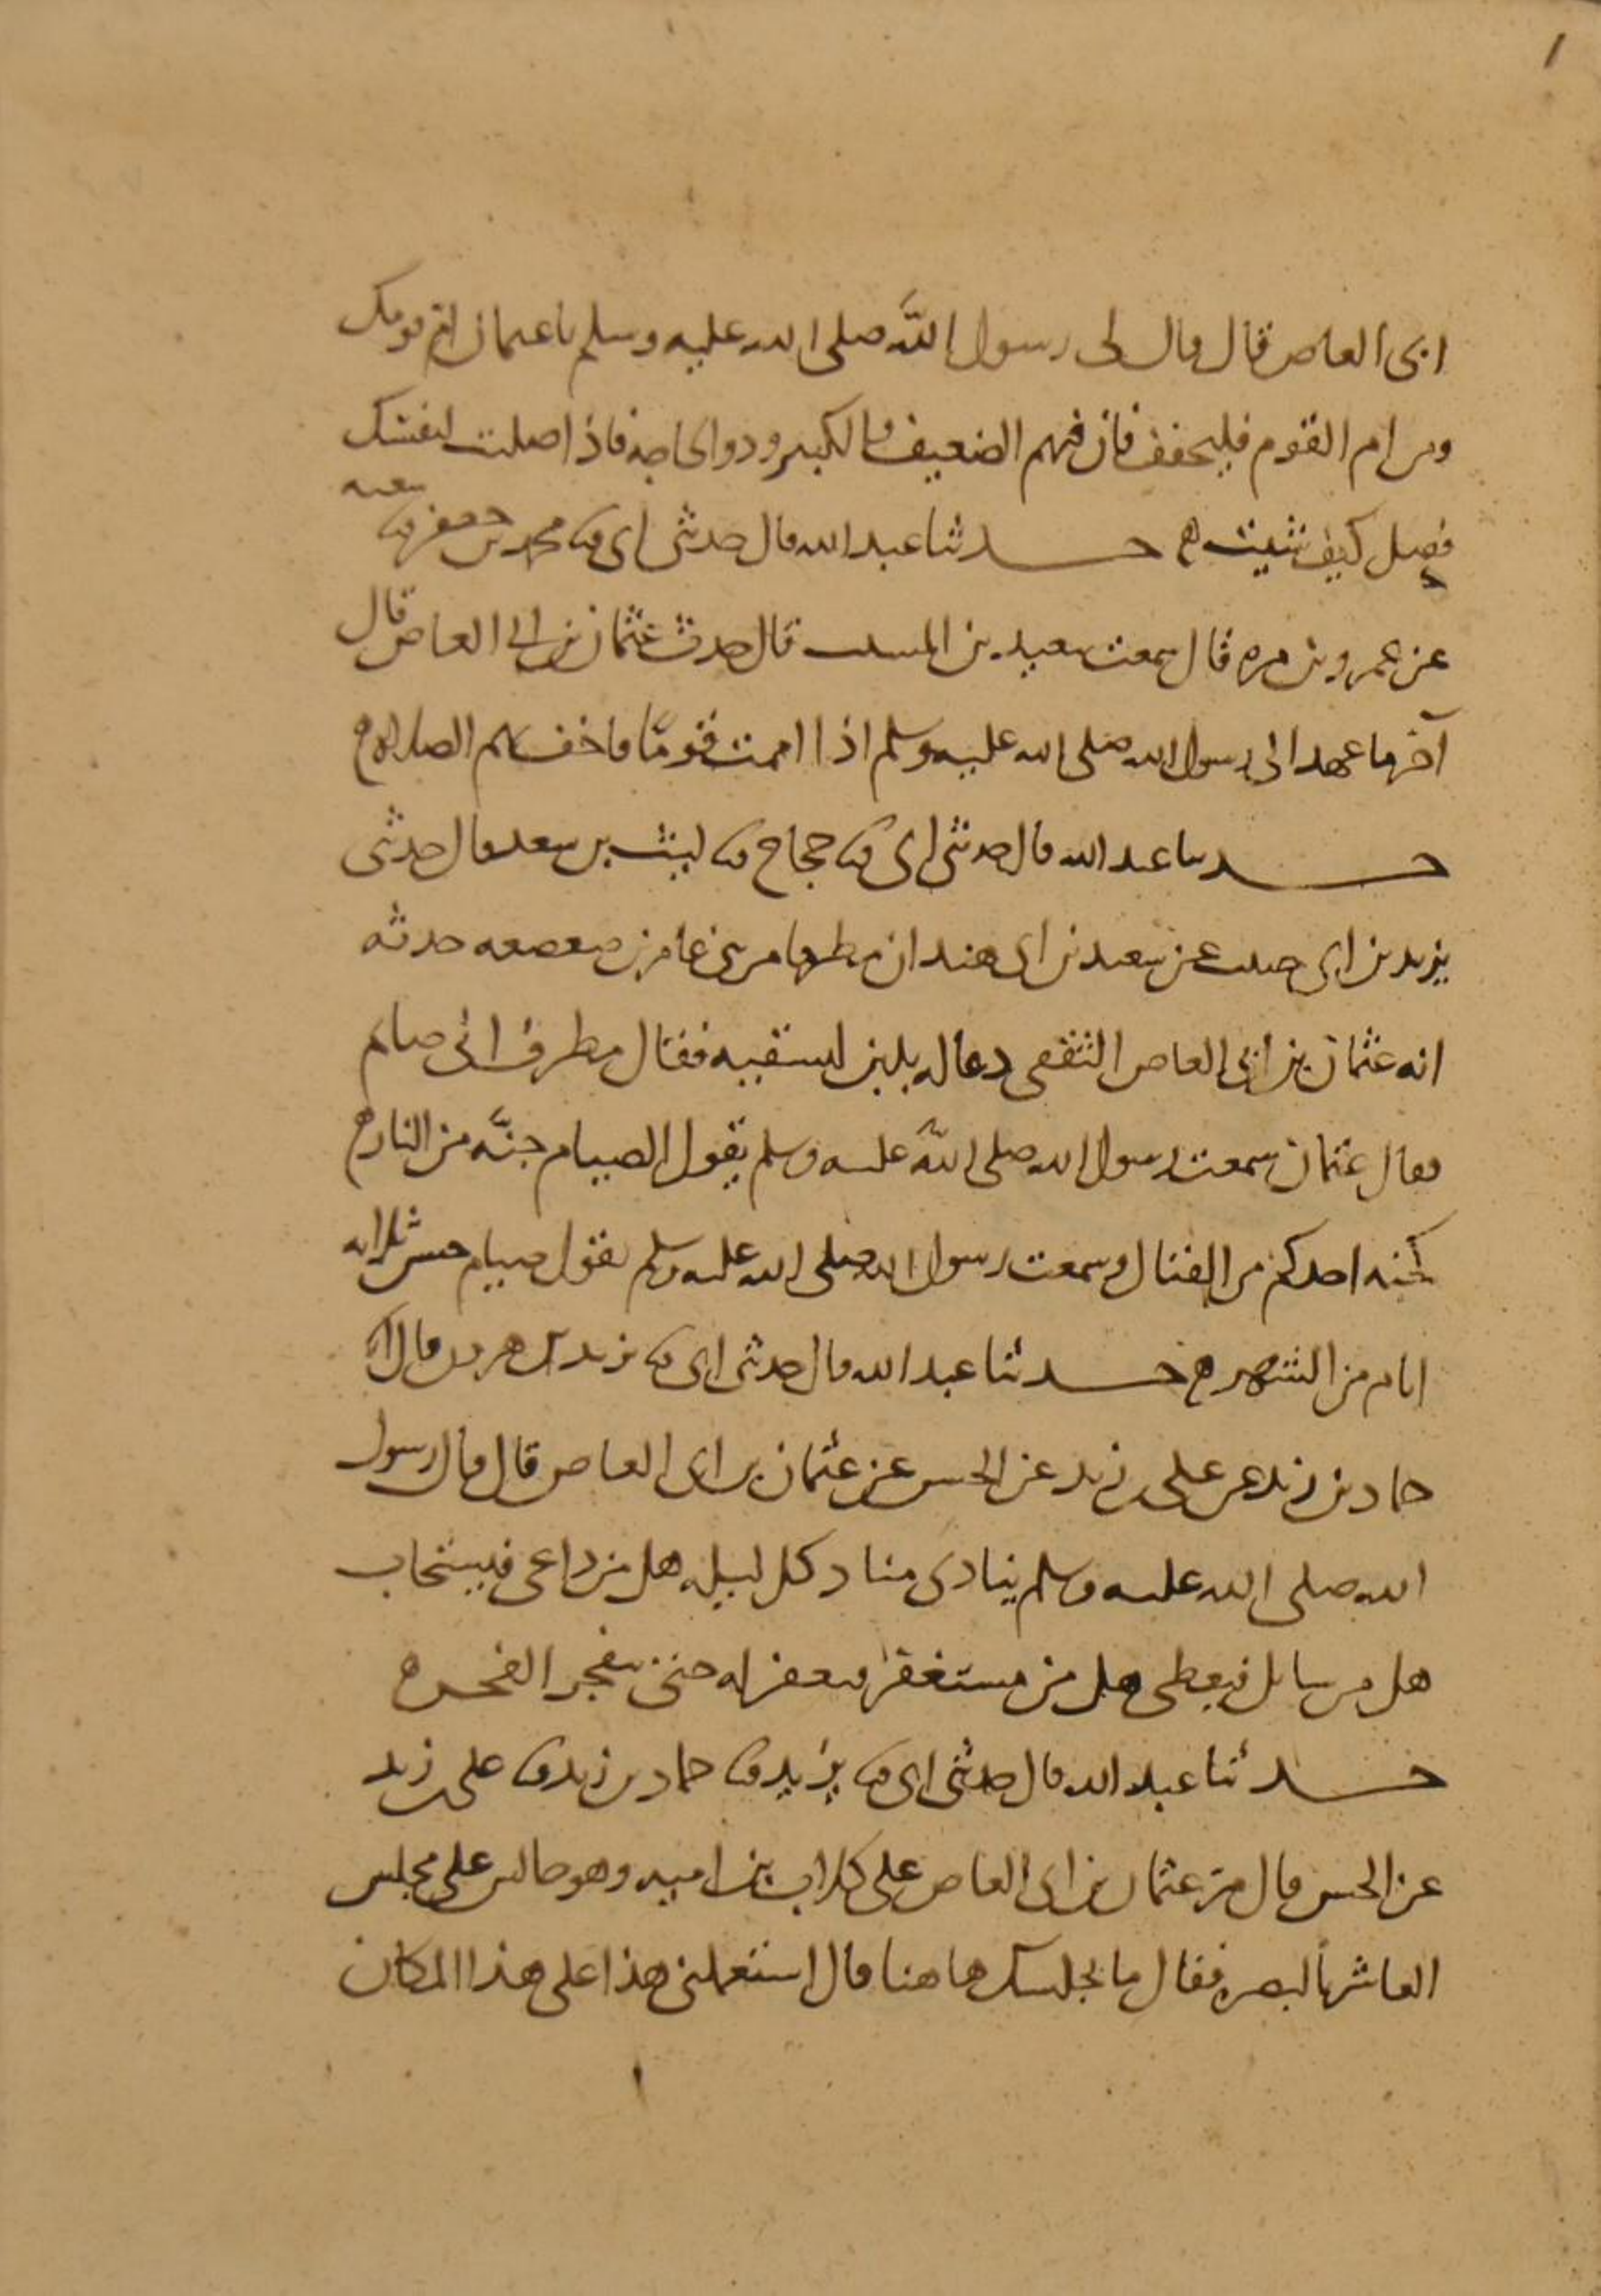 ١
ابى العاص قال قال لى رسول اللَّه صلى الله عليه وسلم يا عثمان ام قومك
ومن ام القوم فليخفف فان فيهم الضعيف والكبير وذو الحاجه فاذا صليت لنفسك
فصل كيف شيت ه حدثنا عبد الله قال حدثنى ابى ثنا محمد بن جعفر ثنا شعبه
عن عمرو بن مره قال سمعت سعيد بن المسيب قال حدث عثمان بن ابى العاص قال
آخر ما عهد الى رسول الله صلى الله عليه وسلم اذا اممت قومًا فاخف بهم الصلاه ه
حدثنا عبد الله قال حدثنى ابى ثنا حجاج ثنا ليث بن سعد قال حدثنى
يزيد بن ابى حبيب عن سعيد بن ابى هند ان مطرفا من بنى عامر بن صعصعه حدثه
انه عثمان بن ابى العاص الثقفى دعا له بلبن ليسقيه فقال مطرف انى صايم
فقال عثمان سمعت رسول الله صلى اللَّه عليه وسلم يقول الصيام جنَّه من النار ه
كجنه احدكم من القتال وسمعت رسول الله صلى الله عليه وسلم يقول صيام حسن ثلاثه
ايام من الشهر ه حدثنا عبد الله قال حدثنى ابى ثنا يزيد بن هرون قال انا
حماد بن زيد عن على بن زيد عن الحسن عن عثمان بن ابى العاص قال قال رسول
الله صلى الله عليه وسلم ينادى مناد كل ليله هل من داعى فيستجاب
هل من سايل فيعطى هل من مستغفر فيغفر له حتى ينفجر الفجر ه
حدثنا عبد الله قال حدثنى ابى ثنا يزيد ثنا حماد بن زيد ثنا على بن زيد
عن الحسن قال مرّ عثمان بن ابى العاص على كلاب بن اميه وهو جالس على مجلس
العاشر بالبصره فقال ما يجلسك هاهنا قال استعملنى هذا على هذا المكان